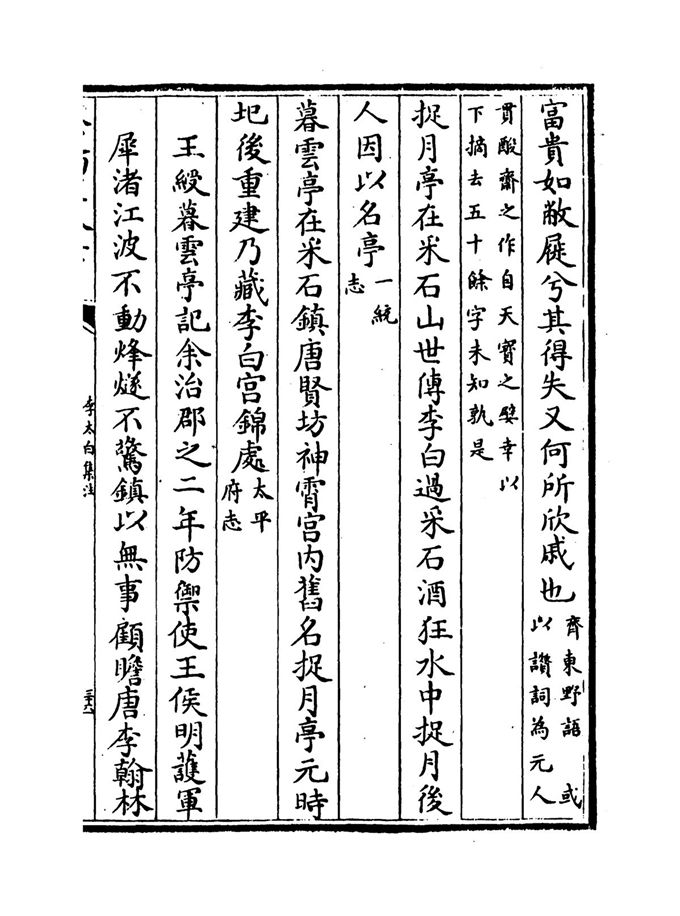 富貴如敝屣兮其得失又何所欣戚也齊東野語 或以讚詞為元人
貫酸齋之作自天寳之嬖幸以下摘去五十餘字未知孰是
捉月亭在采石山世傳李白過采石酒狂水中捉月後
人因以名亭一統志
暮雲亭在采石鎮唐賢坊神霄宫内舊名捉月亭元時
圯後重建乃藏李白宫錦處太平府志
王綬暮雲亭記余治郡之二年防禦使王侯明護軍
犀渚江波不動烽燧不驚鎮以無事顧瞻唐李翰林
李太白集注
三十六